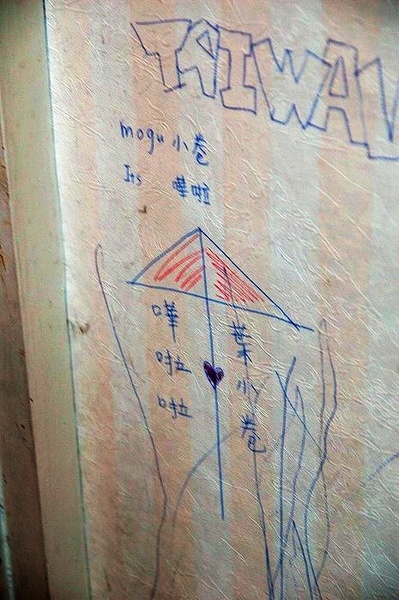 TAIWAN
mogu 小卷
Its 嘩啦
嘩啦啦
葉小卷